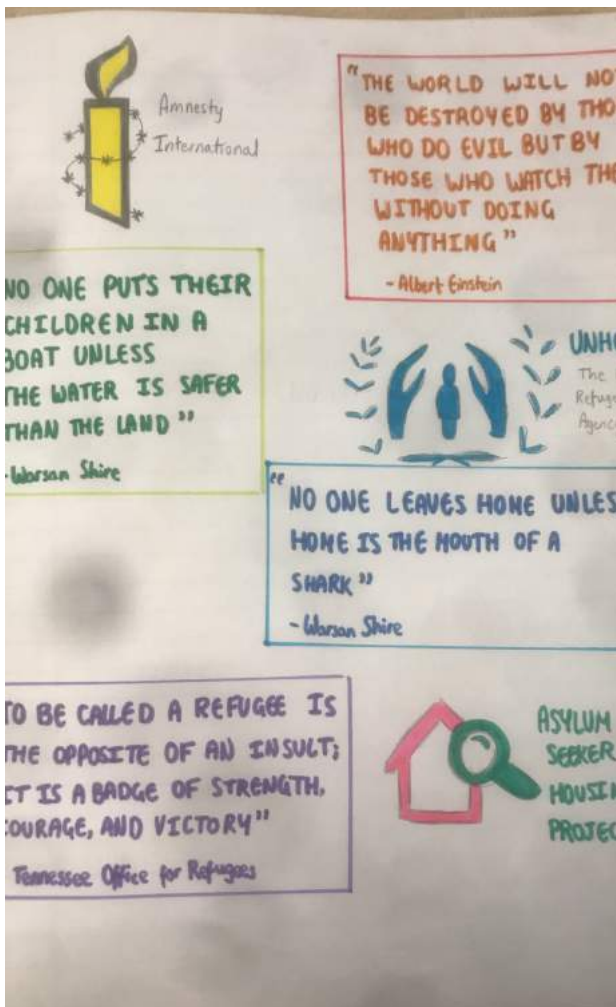 Amnesty
International
"THE WORLD WILL NO
BE DESTROYED BY THO
WHO DO EVIL BUT BY
THOSE WHO WATCH THE
WITHOUT DOING
ANYTHING"
- Albert Einstein
NO ONE PUTS THEIR
CHILDREN IN A
BOAT UNLESS
THE WATER IS SAFER
THAN THE LAND"
- Warsan Shire
UNH
The
Refuge
Agenc
"NO ONE LEAVES HOME UNLES
HOME IS THE MOUTH OF A
SHARK"
- Warsan Shire
TO BE CALLED A REFUGEE IS
THE OPPOSITE OF AN INSULT;
IT IS A BADGE OF STRENGTH,
COURAGE, AND VICTORY"
Tennessee Office for Refugees
ASYLUM
SEEKER
HOUSIN
PROJEC